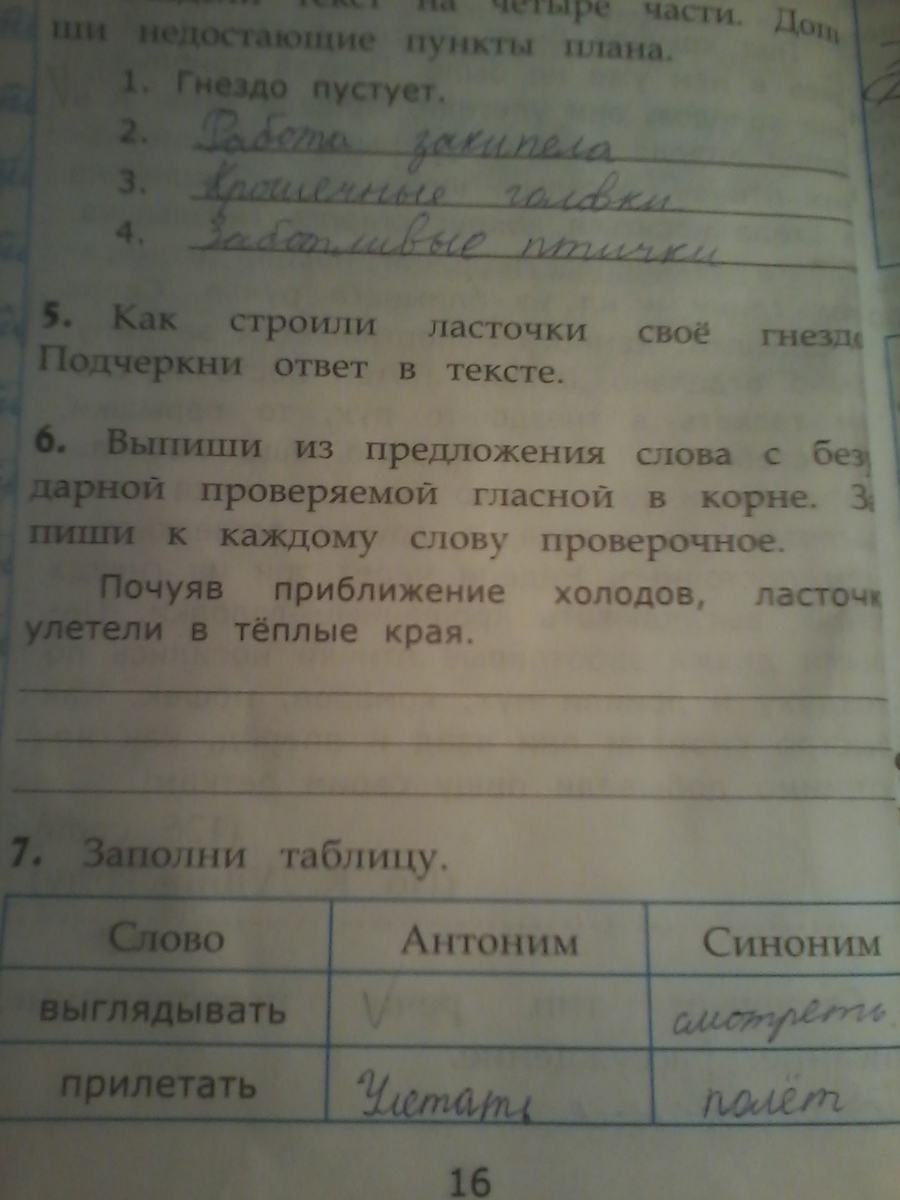 текст на четыре части. Доп
ши недостающие пункты плана.
1. Гнездо пустует.
2. Работа закипела
3. Крошечные головки
4. Заботливые птички
5. Как строили ласточки своё гнездо
Подчеркни ответ в тексте.
6. Выпиши из предложения слова с без
дарной проверяемой гласной в корне. За
пиши к каждому слову проверочное.
Почуяв приближение холодов, ласточк
улетели в тёплые края.
7. Заполни таблицу.
Слово Антоним Синоним
выглядывать смотреть
прилетать Улетать полёт
16